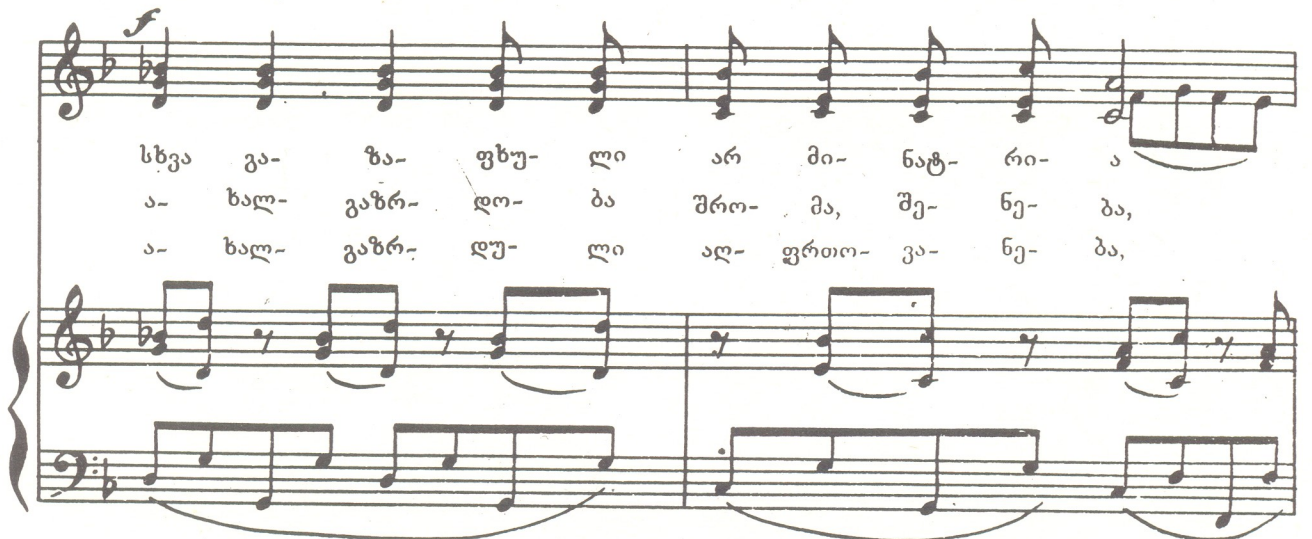 f
სხვა გა- ზა- ფხუ- ლი არ მი- ნატ- რი- ა
ა- ხალ- გაზრ- დო- ბა შრო- მა, შე- ნე- ბა,
ა- ხალ- გაზრ- დუ- ლი აღ- ფრთო- ვა- ნე- ბა,